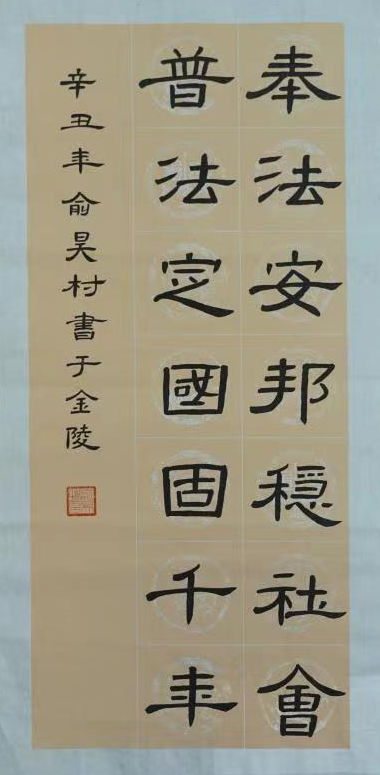 奉法安邦穩社會
普法定國固千年
辛丑年俞昊村書于金陵